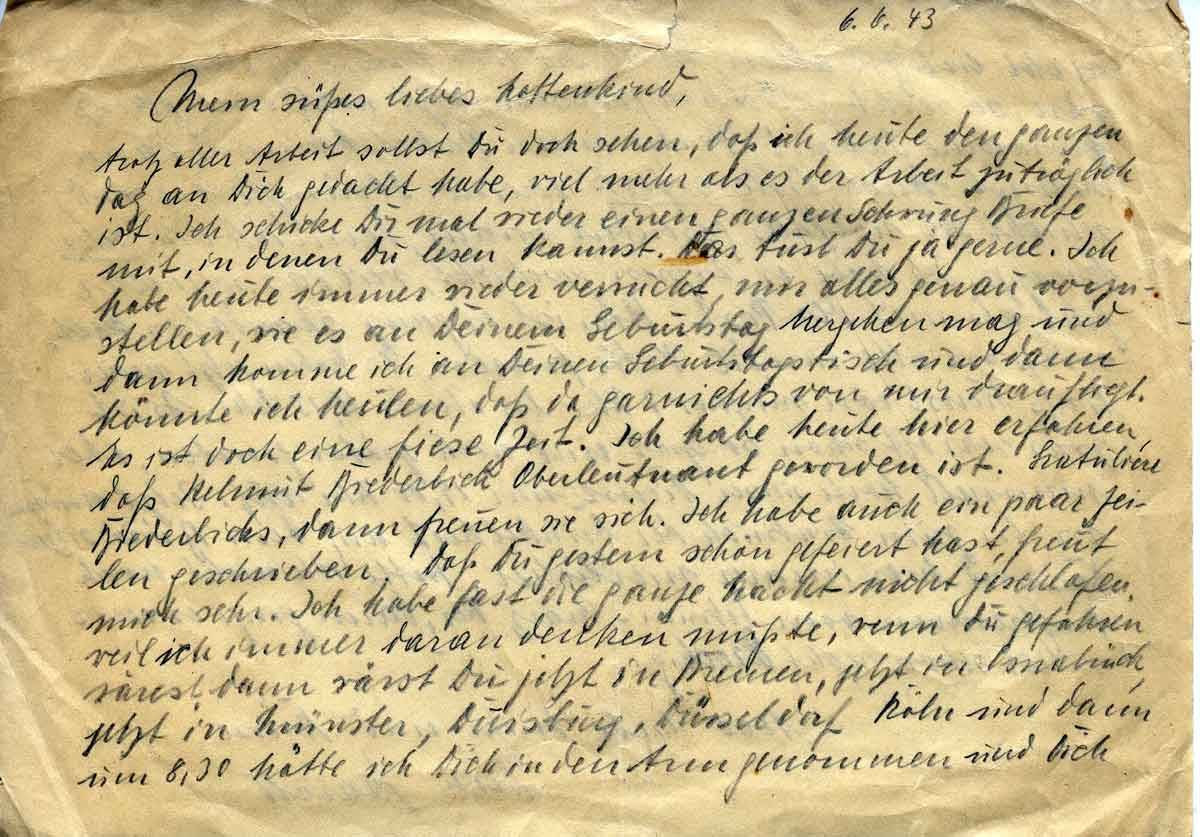 6. 6. 43
Mein süßes liebes Kattenkind,
trotz aller Arbeit sollst Du doch sehen, daß ich heute den ganzen
Tag an Dich gedacht habe, viel mehr als es der Arbeit zuträglich
ist. Ich schicke Dir mal wieder einen ganzen Schwung Briefe
mit, in denen Du lesen kannst. Das tust Du ja gerne. Ich
habe heute immer wieder versucht, mir alles genau vorzu-
stellen, wie es an Deinem Geburtstag hergehen mag und
dann komme ich an Deinen Geburtstagstisch und dann
könnte ich heulen, daß da garnichts von mir drauf liegt.
Es ist doch eine fiese Zeit. Ich habe heute hier erfahren,
daß Helmut Biederbick Oberleutnant geworden ist. Gratuliere
Biederbicks, dann freuen sie sich. Ich habe auch ein paar Zei-
len geschrieben. Daß Du gestern schön gefeiert hast, freut
mich sehr. Ich habe fast die ganze Nacht nicht geschlafen,
weil ich immer daran denken mußte, wenn Du gefahren
wärest, dann wärst Du jetzt in Bremen, jetzt in Osnabrück,
jetzt in Münster, Duisburg, Düsseldorf Köln und dann
um 8,30 hätte ich Dich in den Arm genommen und Dich